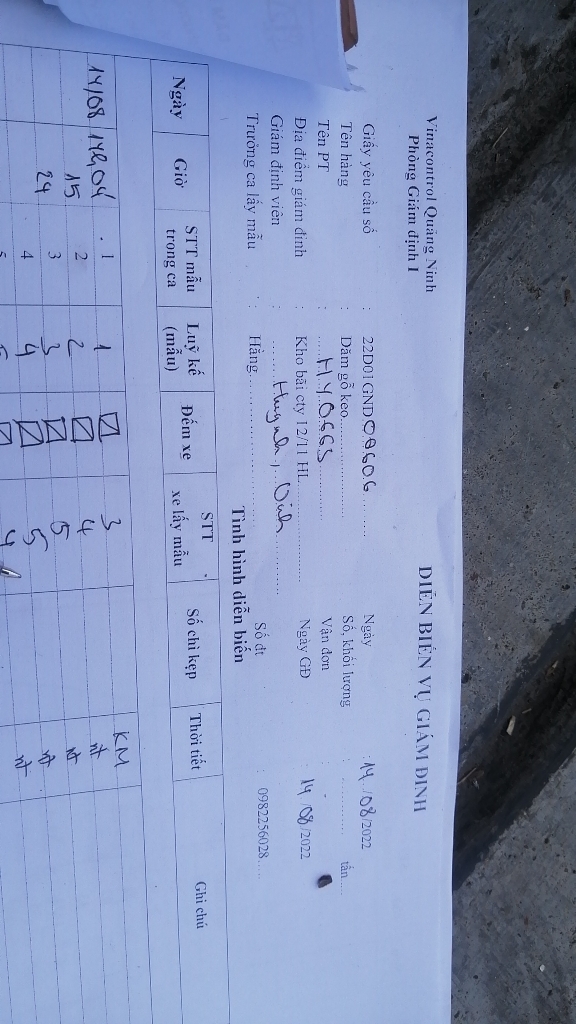 Vinacontrol Quảng Ninh
Phòng Giám định I
DIỄN BIẾN VỤ GIÁM ĐỊNH
Giấy yêu cầu số : 22D01GND08606 Ngày : 14/08/2022
Tên hàng : Dăm gỗ keo Số, khối lượng : tấn
Tên PT : HY 0665 Vận đơn :
Địa điểm giám định : Kho bãi cty 12/11 HL Ngày GĐ : 14/08/2022
Giám định viên : Huỳnh,
Trưởng ca lấy mẫu : Hằng Số đt : 0982256028
Tình hình diễn biến
Ngày Giờ STT mẫu trong ca Luỹ kế (mẫu) Đếm xe STT xe lấy mẫu Số chì kẹp Thời tiết Ghi chú
14/08 14h04 1 1 3 KM
15 2 2 4 nt
24 3 3 5 nt
4 4 5 nt
5 5 4 nt